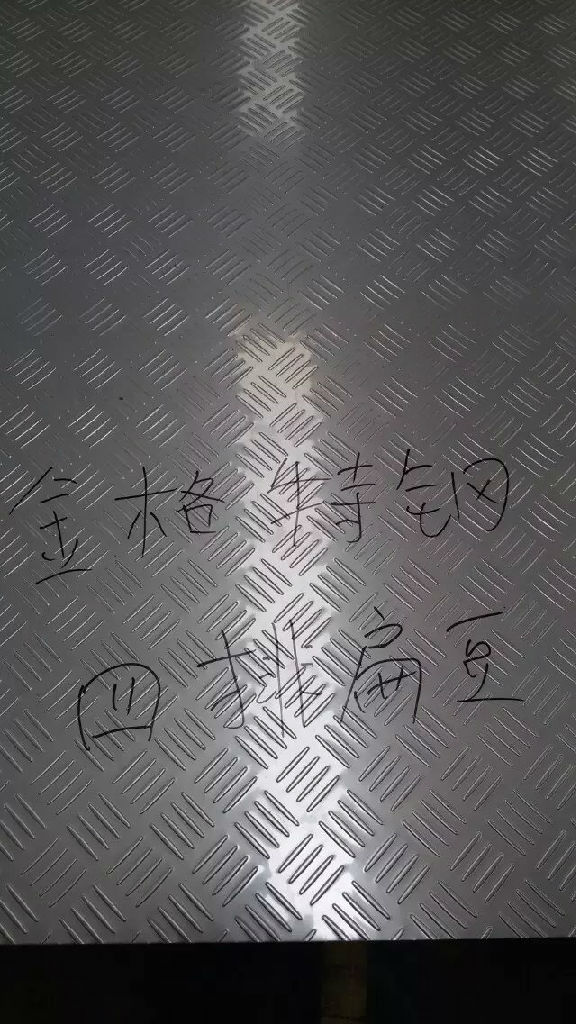 金格特钢
四排扁豆